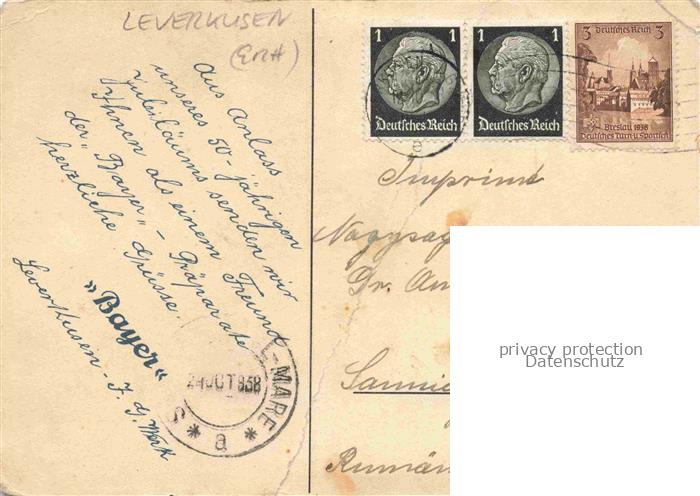 LEVERKUSEN
Aus Anlass
unseres 50-jährigen
Jubiläums senden wir
Ihnen als einem Freund
der "Bayer" - Präparate
herzliche Grüsse.
"Bayer"
Leverkusen - I. G. Werk
-MARE
24 OCT 938
S * a *
1
1
Deutsches Reich
1
1
Deutsches Reich
3 Deutsches Reich 3
Breslau 1938
Deutsches Turn- u. Sportfest
a
Imprimé
Nagyság
Dr. An
Rumän
privacy protection
Datenschutz